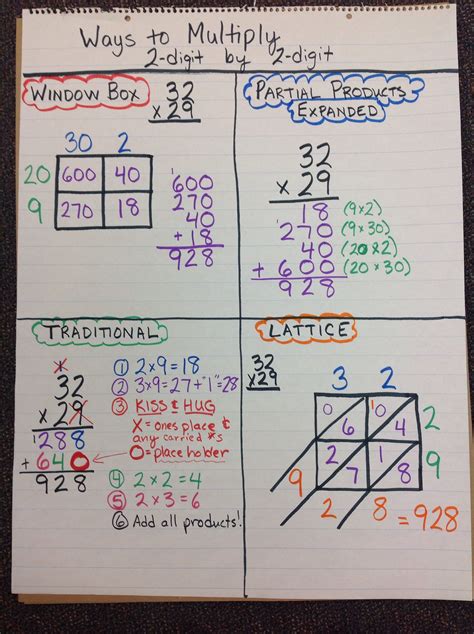 Ways to Multiply
2-digit by 2-digit
WINDOW BOX
32
x 29
30 2
20 600 40
9 270 18
600
270
40
+ 18
928
PARTIAL PRODUCTS
EXPANDED
32
x 29
18 (9x2)
270 (9x30)
40 (20x2)
+ 600 (20x30)
928
TRADITIONAL
1
32
x 29
1288
+ 640
928
① 2x9=18
② 3x9=27+"1"=28
③ KISS & HUG
X = ones place &
any carried #s
O = place holder
④ 2x2=4
⑤ 2x3=6
⑥ Add all products!
LATTICE
32
x29
3 2
0 6 1 0 4 2
2 7 1 8 9
9 2 8 = 928